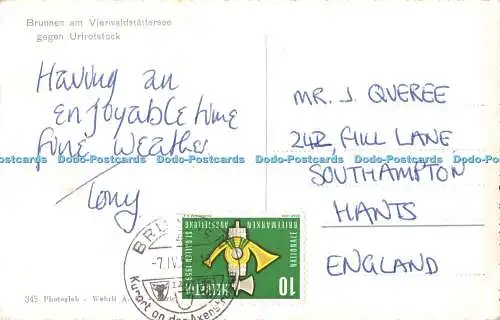 Brunnen am Vierwaldstättersee
gegen Urirotstock
Having an
enjoyable time
fine weather
Tony
MR. J. QUEREE
242, HILL LANE,
SOUTHAMPTON
HANTS
ENGLAND
Dodo-Postcards Dodo-Postcards Dodo-Postcards Dodo-Postcards Dodo-Postcards
BRU
-7.IV
Kurort an der Axenstr
NATIONALE
BRIEFMARKEN
AUSSTELLUNG
ST. GALLEN 1959
HELVETIA
10
345 Photoglob - Wehrli A